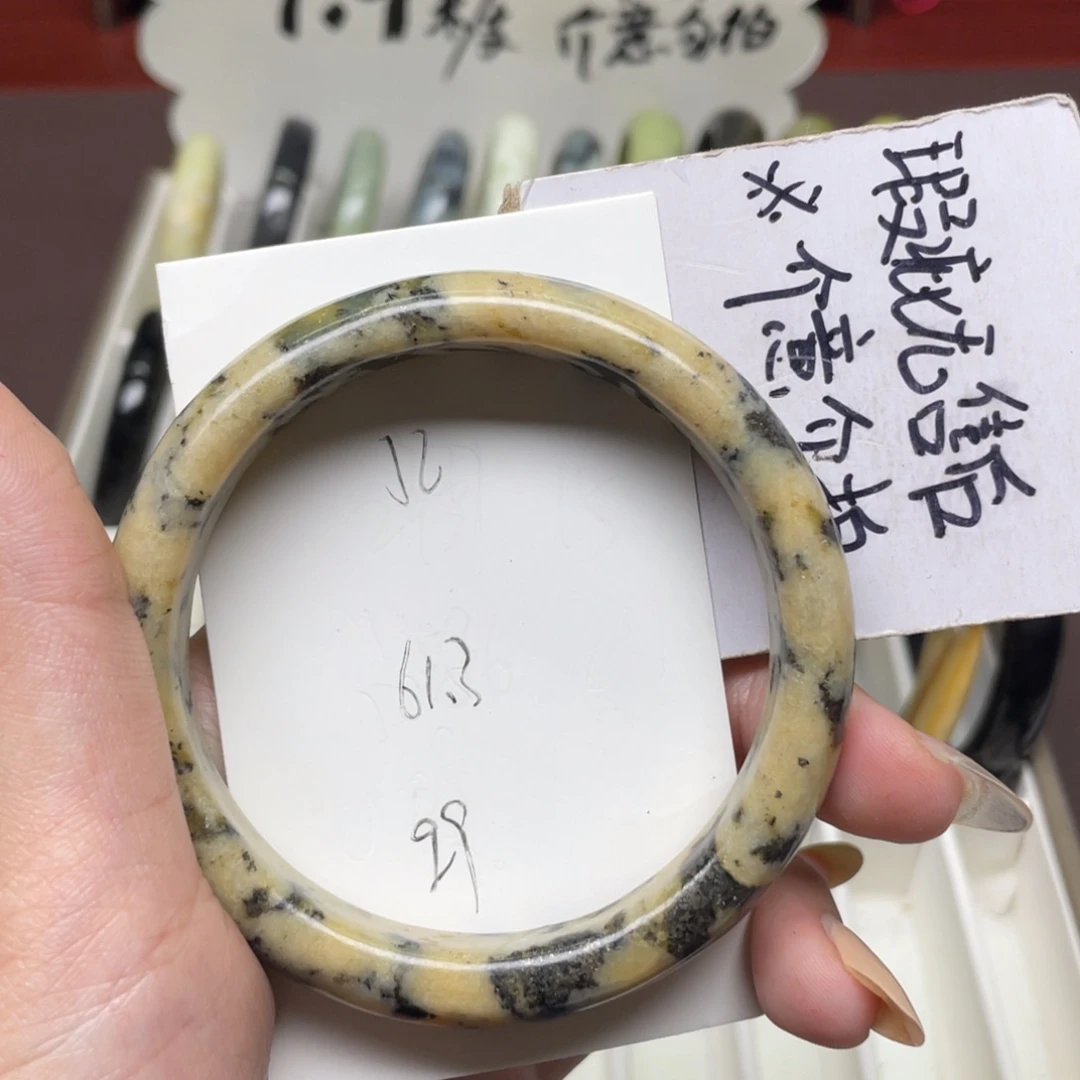 介意勿拍
瑕疵无售后
※介意勿拍
J2
61.3
29